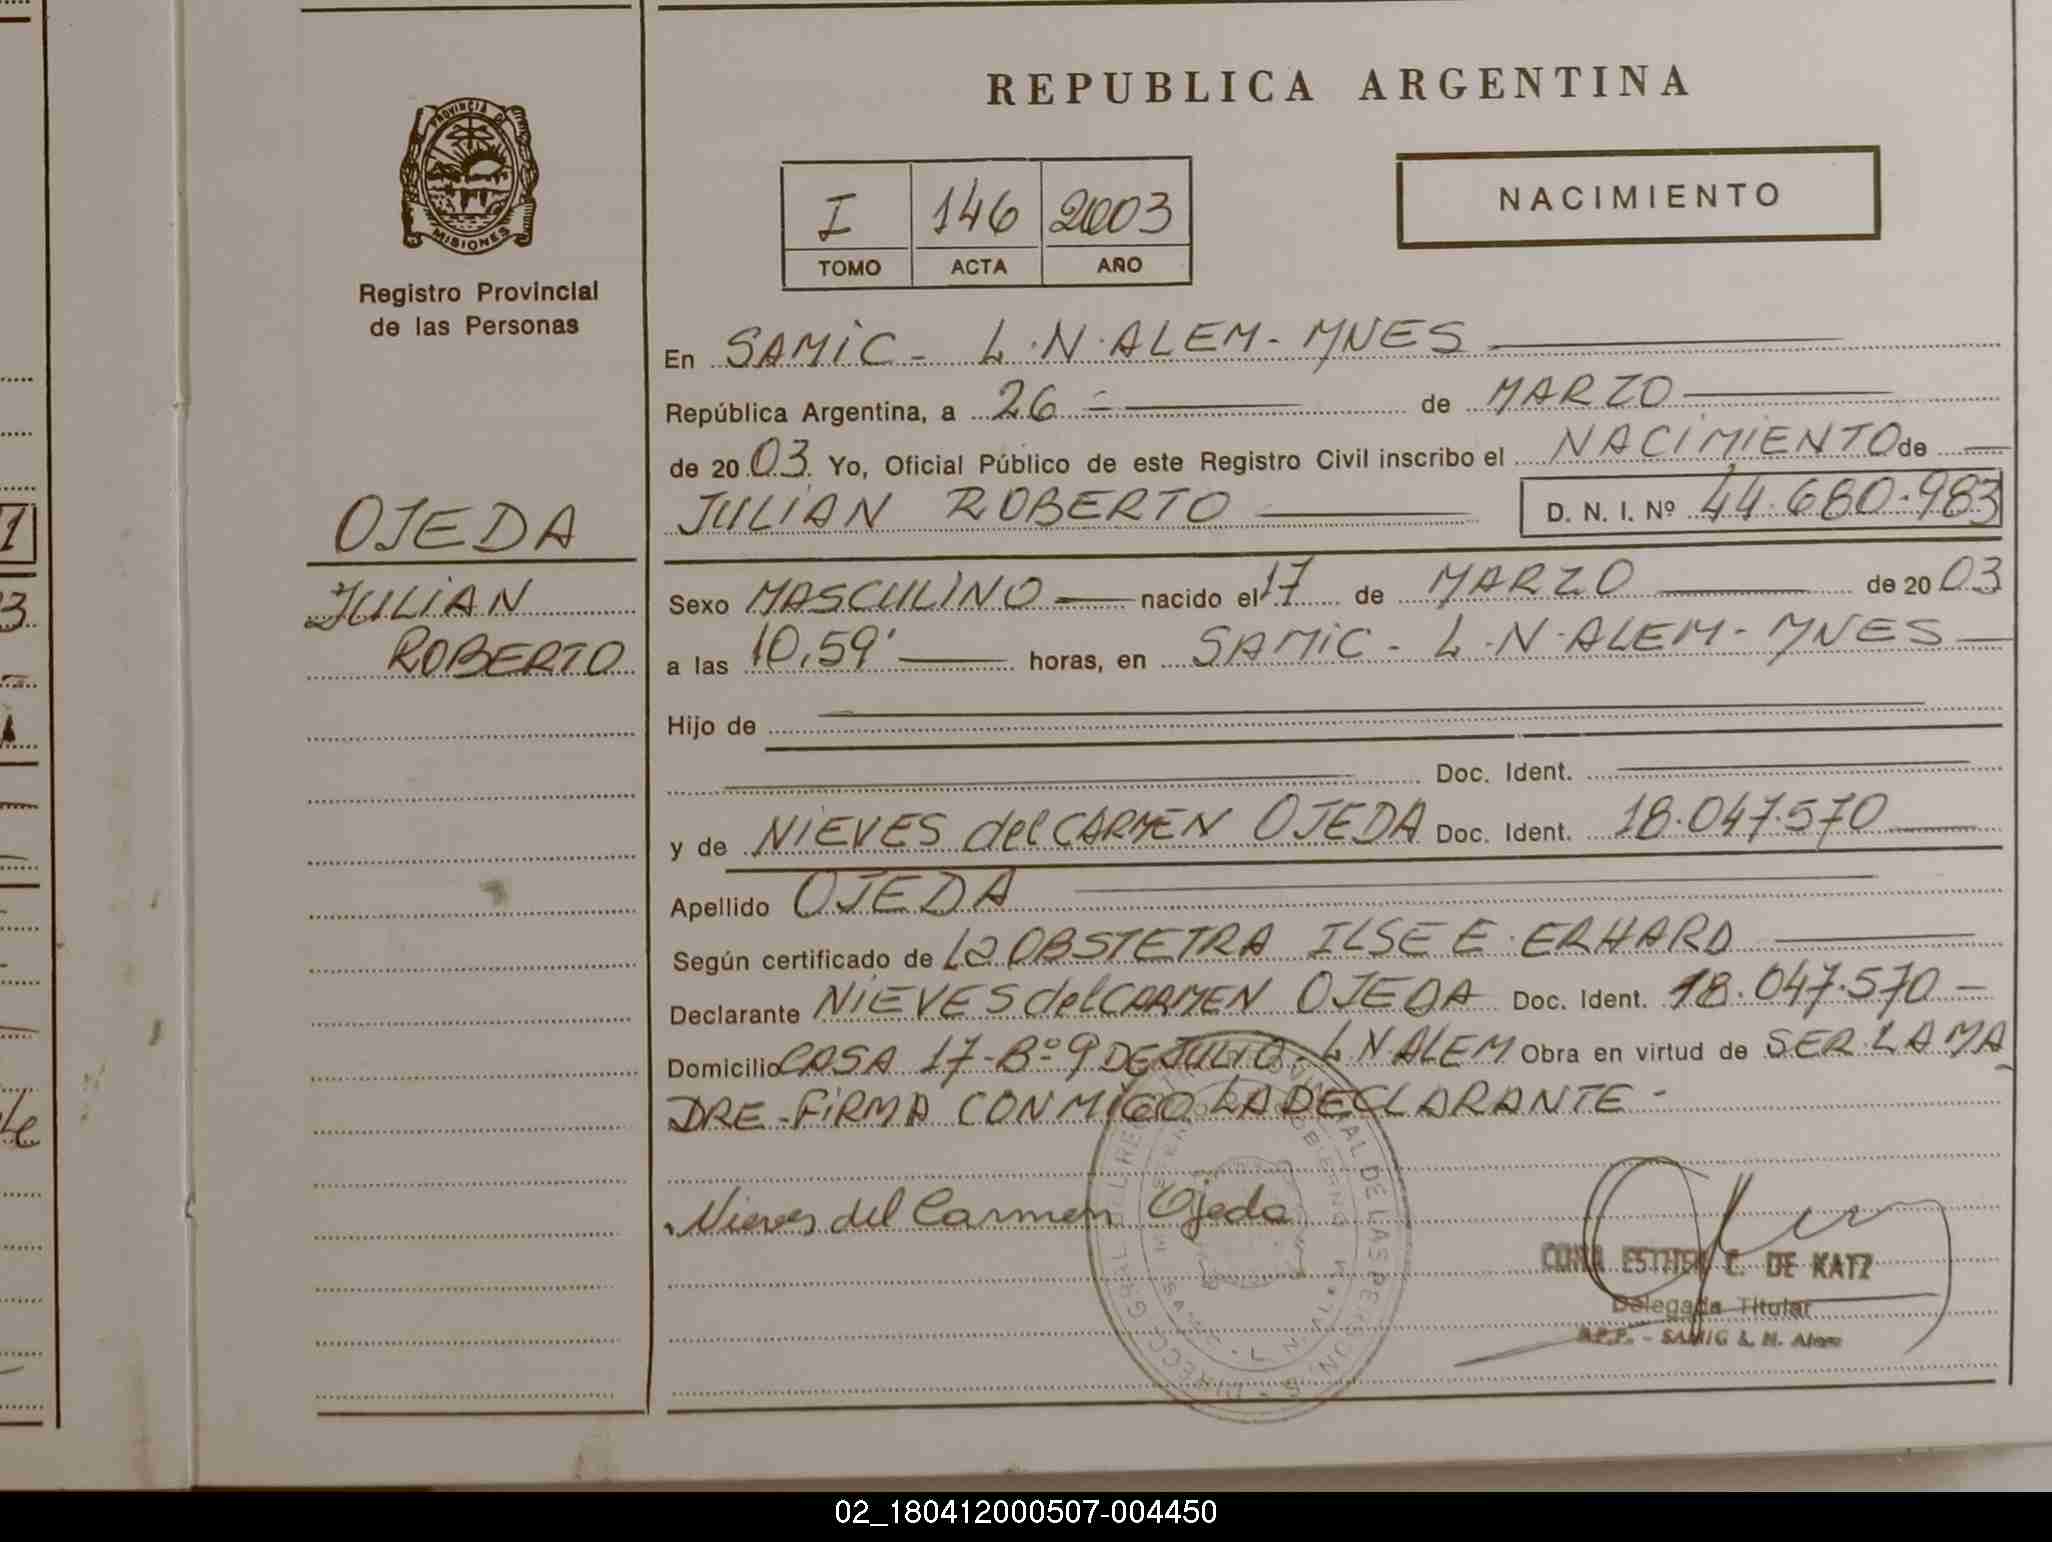 REPUBLICA ARGENTINA
PROVINCIA DE
MISIONES
Registro Provincial
de las Personas
I 146 2003
TOMO ACTA AÑO
NACIMIENTO
En SAMIC - L.N.ALEM - MNES
República Argentina, a 26 de MARZO
de 2003 Yo, Oficial Público de este Registro Civil inscribo el NACIMIENTO de
JULIAN ROBERTO D. N. I. Nº 44.680.983
OJEDA
JULIAN
ROBERTO
Sexo MASCULINO nacido el 17 de MARZO de 2003
a las 10,59' horas, en SAMIC - L.N.ALEM - MNES
Hijo de
Doc. Ident.
y de NIEVES del CARMEN OJEDA Doc. Ident. 18.047.570
Apellido OJEDA
Según certificado de La OBSTETRA ILSE E. ERHARD
Declarante NIEVES del CARMEN OJEDA Doc. Ident. 18.047.570 -
Domicilio CASA 17 - Bº 9 DE JULIO - L N ALEM Obra en virtud de SER LA MA
DRE - FIRMA CONMIGO LA DECLARANTE -
Nieves del Carmen Ojeda
ESTHER C. DE KATZ
Delegada Titular
R.P.P. - SAMIC L. N. Alem
02_180412000507-004450